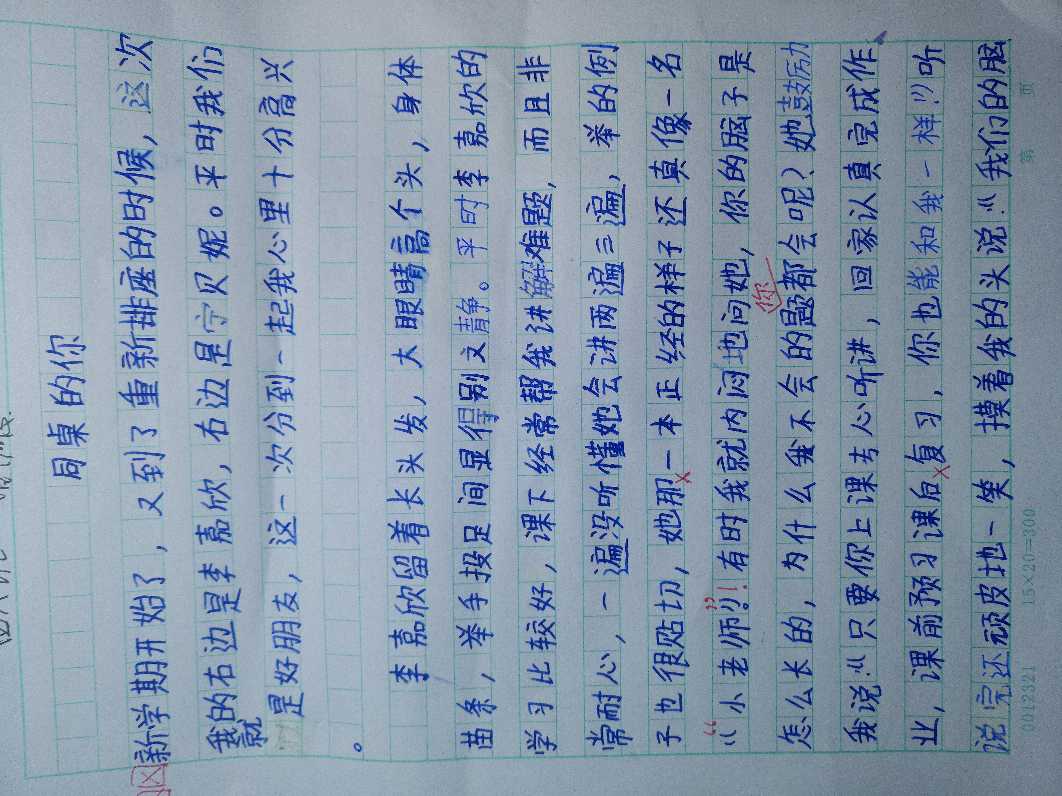 同桌的你
新学期开始了，又到了重新排座的时候，这次
我的右边是李嘉欣，右边是宁贝妮。平时我们
就是好朋友，这一次分到一起我心里十分高兴
。
李嘉欣留着长头发，大眼睛高个头，身体
苗条，举手投足间显得别文静。平时李嘉欣的
学习比较好，课下经常帮我讲解难题，而且非
常耐心，一遍没听懂她会讲两遍三遍，举的例
子也很贴切，她那一本正经的样子还真像一名
“小老师”！有时我就内闷地问她，你的脑子是
你
怎么长的，为什么我不会的题都会呢？她鼓励
我说：“只要你上课专心听讲，回家认真完成作
业，课前预习课后复习，你也能和我一样！”听
说完还顽皮地一笑，摸着我的头说：“我们的脑
0012321 15×20=300 第 页